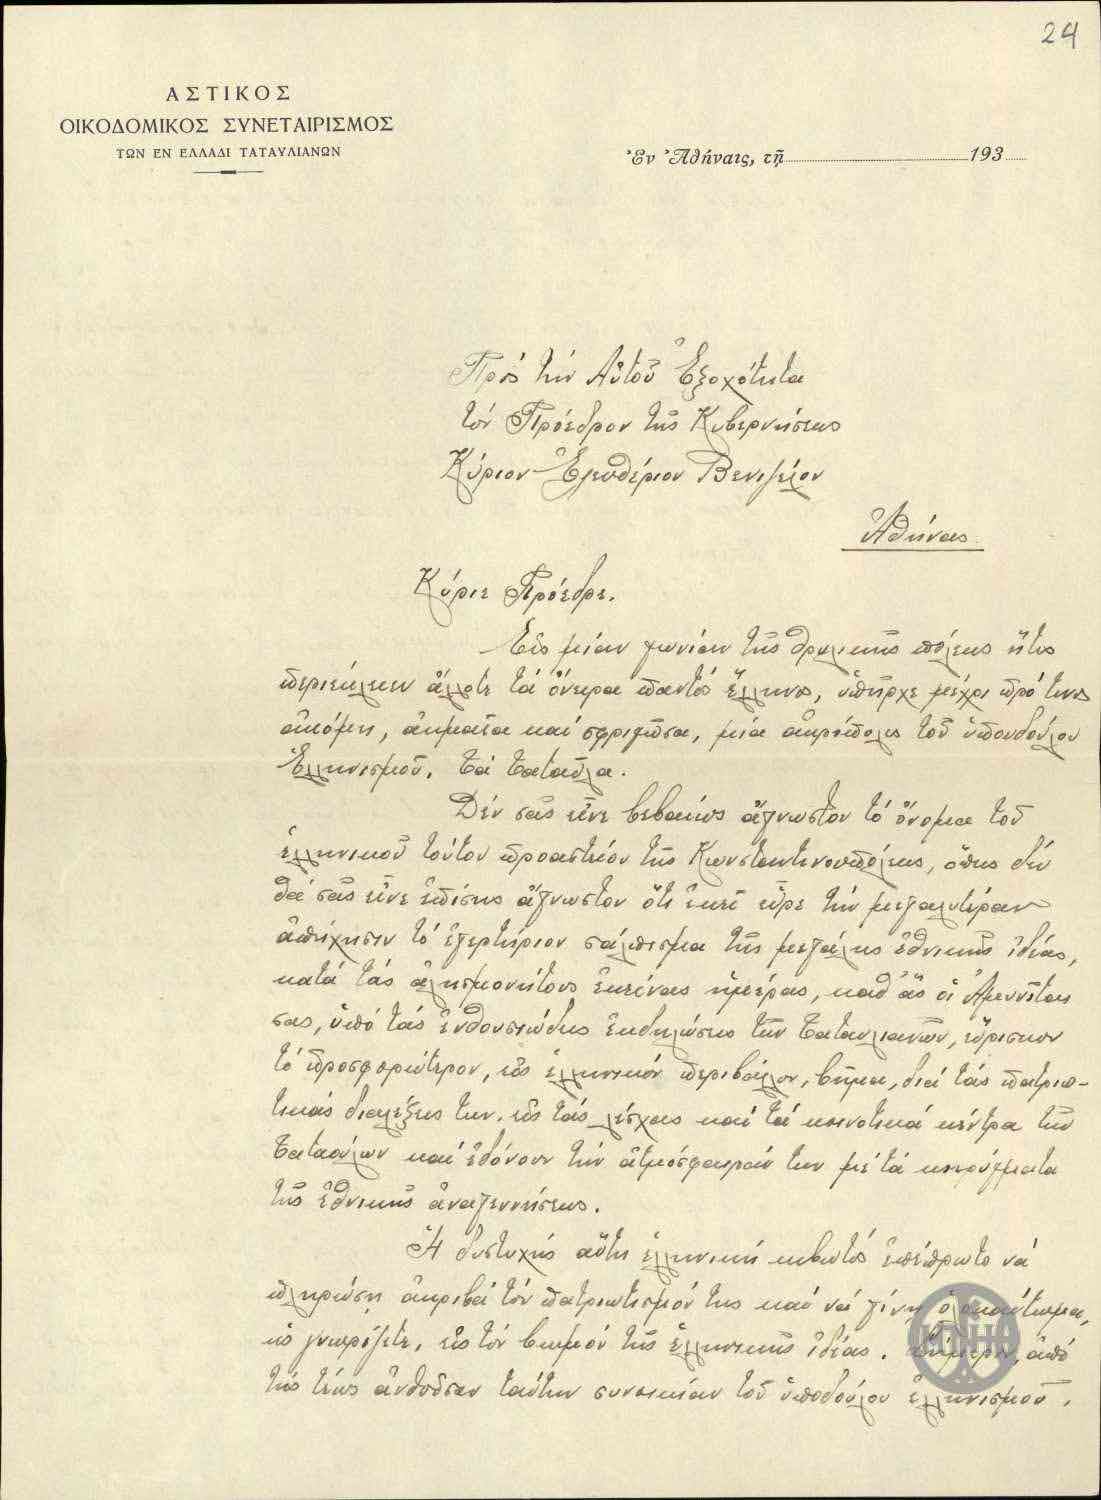 24
ΑΣΤΙΚΟΣ
ΟΙΚΟΔΟΜΙΚΟΣ ΣΥΝΕΤΑΙΡΙΣΜΟΣ
ΤΩΝ ΕΝ ΕΛΛΑΔΙ ΤΑΤΑΥΛΙΑΝΩΝ
Ἐν Ἀθήναις, τῇ 193
Πρὸς τὴν Αὐτοῦ Ἐξοχότητα
τὸν Πρόεδρον τῆς Κυβερνήσεως
Κύριον Ἐλευθέριον Βενιζέλον
Ἀθήνας
Κύριε Πρόεδρε.
Εἰς μίαν γωνίαν τῆς θρυλικῆς πόλεως ἥτις
περιέκλειεν ἄλλοτε τὰ ὄνειρα παντὸς ἕλληνος, ὑπῆρχε μέχρι πρό τινος
ἀκόμη, ἀκμαία καὶ σφριγῶσα, μία ἀκρόπολις τοῦ ὑποδούλου
Ἑλληνισμοῦ. Τὰ Ταταῦλα.
Δὲν σᾶς εἶνε βεβαίως ἄγνωστον τὸ ὄνομα τοῦ
ἑλληνικοῦ τούτου προαστείου τῆς Κωνσταντινουπόλεως, ὅπως δὲν
θὰ σᾶς εἶνε ἐπίσης ἄγνωστον ὅτι ἐκεῖ εὗρε τὴν μεγαλυτέραν
ἀπήχησιν τὸ ἐγερτήριον σάλπισμα τῆς μεγάλης ἐθνικῆς ἰδέας,
κατὰ τὰς ἀλησμονήτους ἐκείνας ἡμέρας, καθ' ἃς οἱ Ἀμυνῖται
σας, ὑπὸ τὰς ἐνθουσιώδεις ἐκδηλώσεις τῶν Ταταυλιανῶν, εὕρισκον
τὸ προσφορώτερον, εἰς ἑλληνικὸν περιβάλλον, βῆμα, διὰ τὰς πατριω-
τικὰς διαλέξεις των, εἰς τὰς λέσχας καὶ τὰ κοινοτικὰ κέντρα τῶν
Ταταούλων καὶ ἐδόνουν τὴν ἀτμόσφαιράν των μὲ τὰ κηρύγματα
τῆς ἐθνικῆς ἀναγεννήσεως.
Ἡ δυστυχὴς αὕτη ἑλληνικὴ κιβωτὸς ἐπέπρωτο νὰ
πληρώσῃ ἀκριβὰ τὸν πατριωτισμόν της καὶ νὰ γίνῃ ὁλοκαύτωμα,
ὡς γνωρίζετε, εἰς τὸν βωμὸν τῆς ἑλληνικῆς ἰδέας. Σήμερον, ἀπὸ
τῆς τέως ἀνθοῦσαν ταύτην συνοικίαν τοῦ ὑποδούλου ἑλληνισμοῦ,